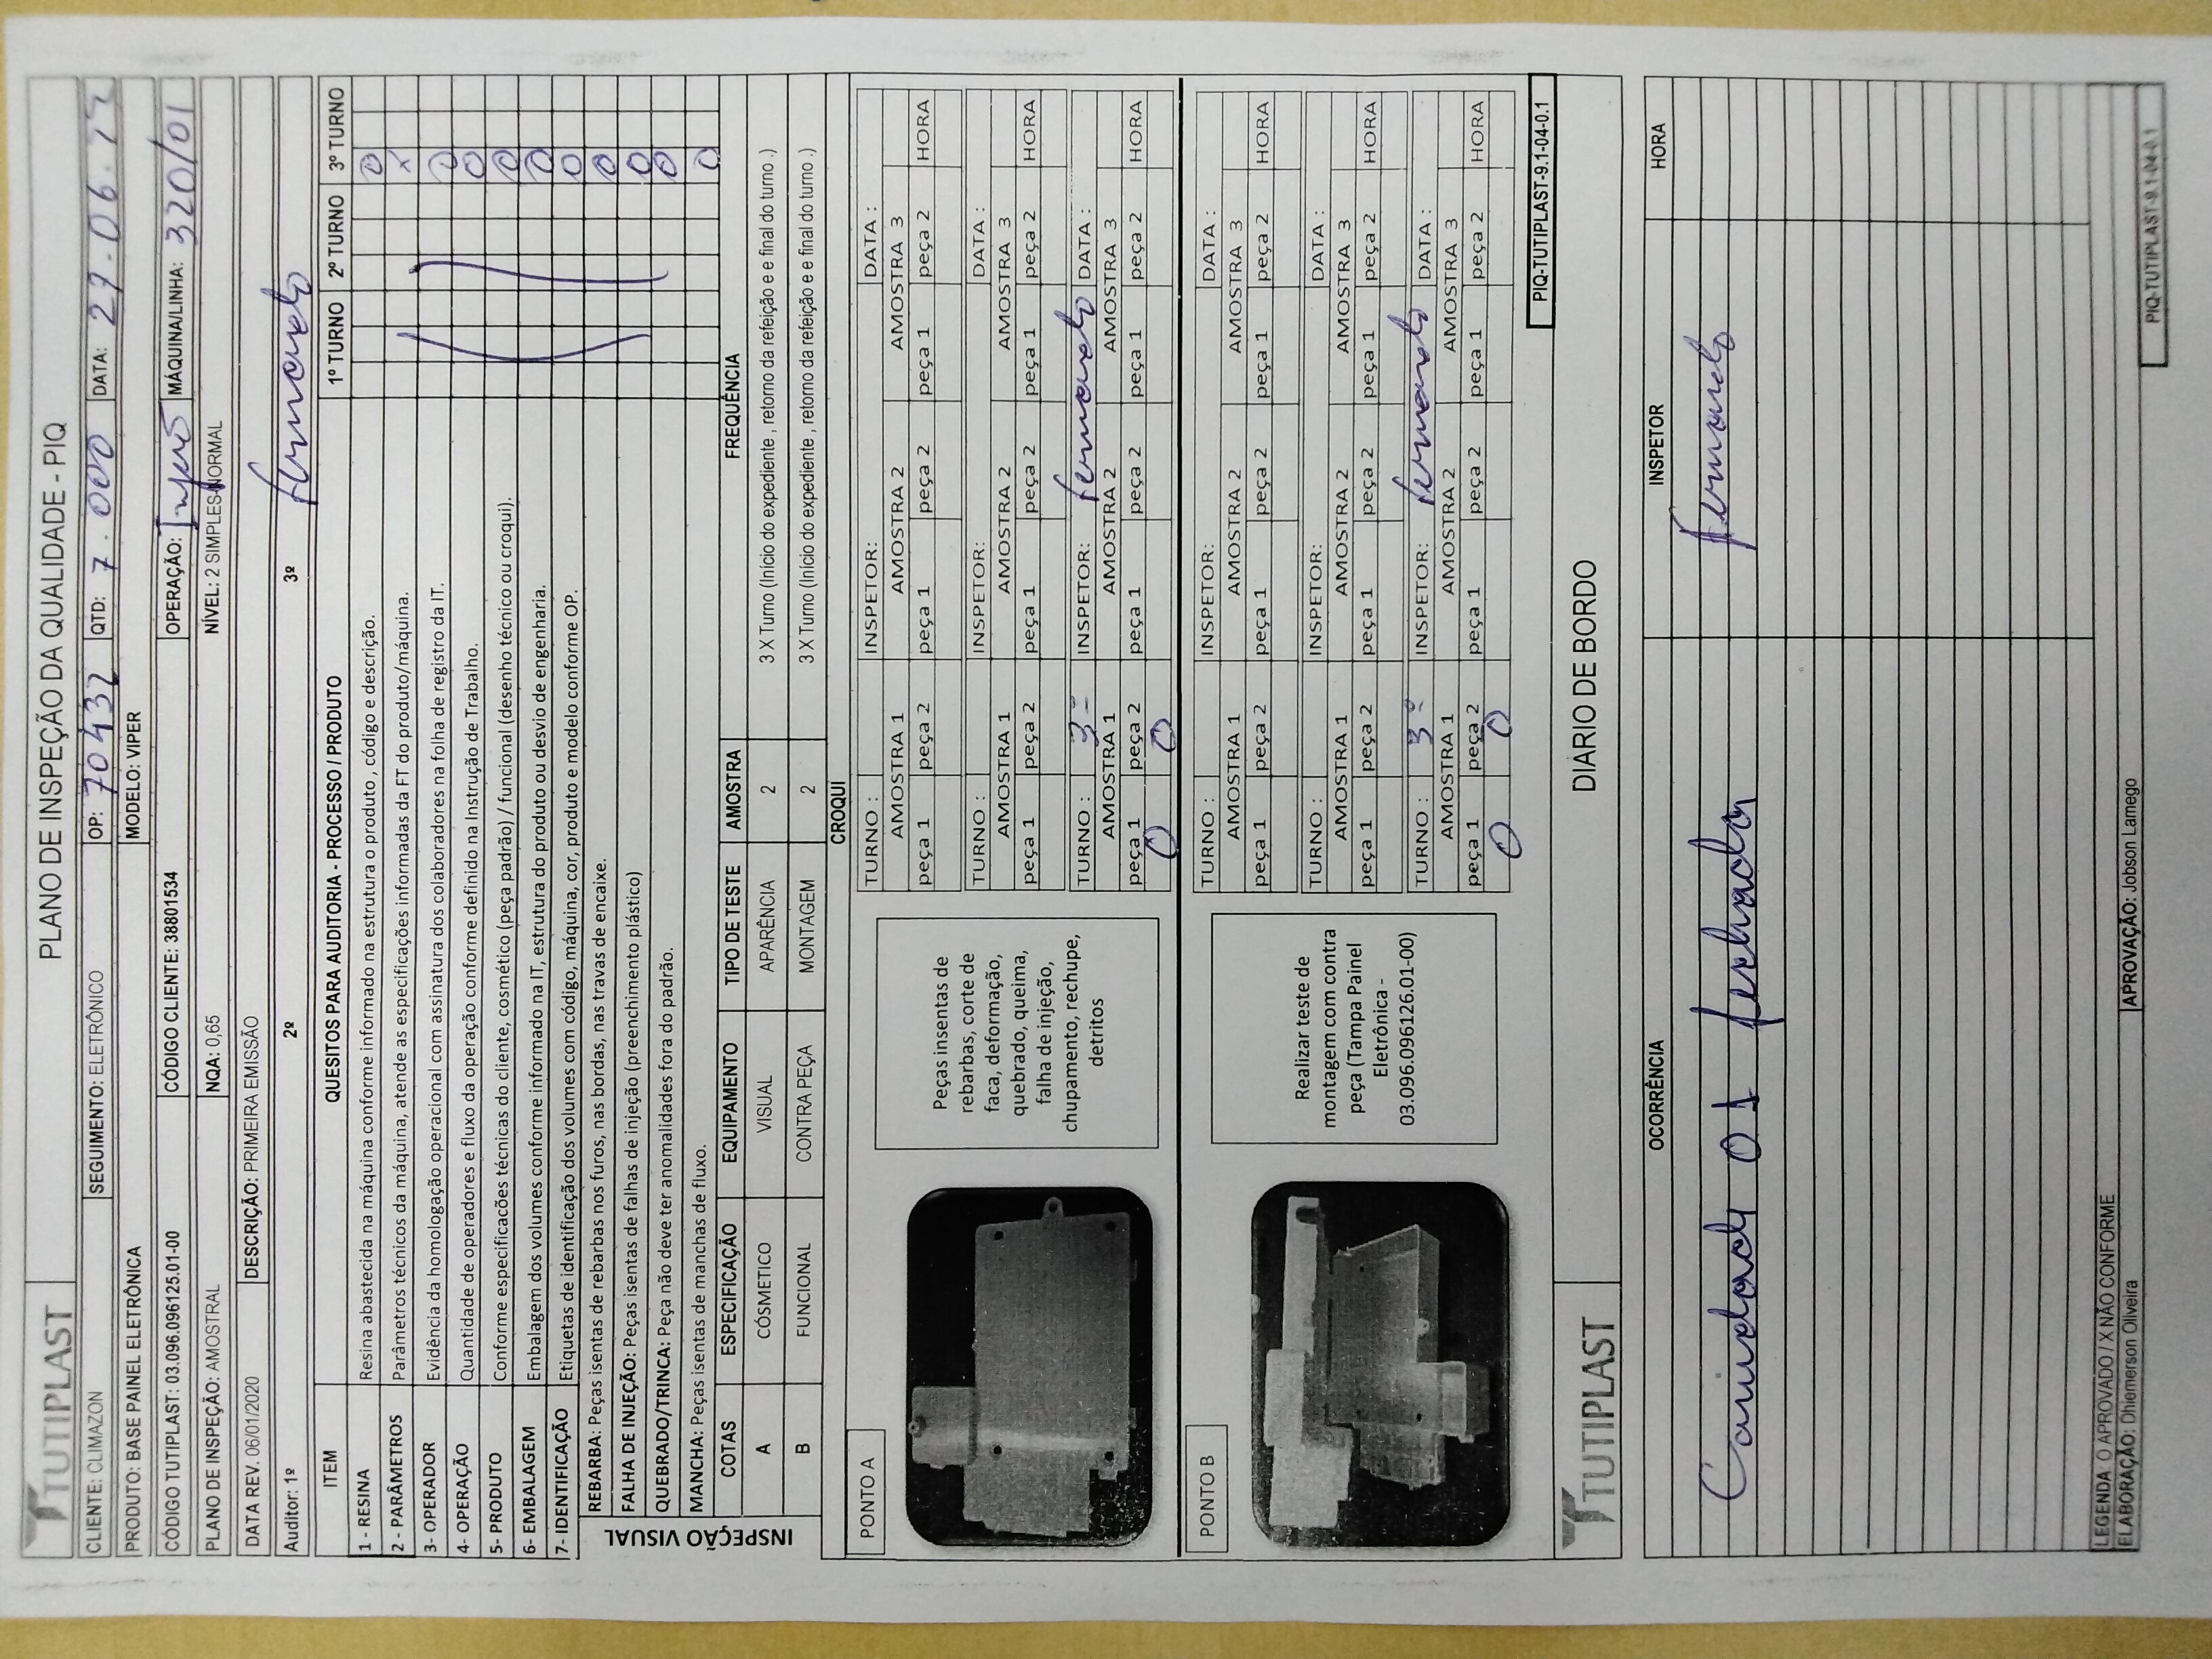 TUTIPLAST
PLANO DE INSPEÇÃO DA QUALIDADE - PIQ
CLIENTE: CLIMAZON SEGUIMENTO: ELETRÔNICO OP: 70432 QTD: 7.000 DATA: 27.06.22
PRODUTO: BASE PAINEL ELETRÔNICA MODELO: VIPER
CÓDIGO TUTIPLAST: 03.096.096125.01-00 CÓDIGO CLIENTE: 38801534 OPERAÇÃO: MÁQUINA/LINHA: 320/01
PLANO DE INSPEÇÃO: AMOSTRAL NQA: 0,65 NÍVEL: 2 SIMPLES-NORMAL
DATA REV. 06/01/2020 DESCRIÇÃO: PRIMEIRA EMISSÃO
Auditor: 1º 2º 3º Fernando
ITEM QUESITOS PARA AUDITORIA - PROCESSO / PRODUTO 1º TURNO 2º TURNO 3º TURNO
1 - RESINA Resina abastecida na máquina conforme informado na estrutura o produto , código e descrição. O
2 - PARÂMETROS Parâmetros técnicos da máquina, atende as especificações informadas da FT do produto/máquina. X
3- OPERADOR Evidência da homologação operacional com assinatura dos colaboradores na folha de registro da IT. O
4- OPERAÇÃO Quantidade de operadores e fluxo da operação conforme definido na Instrução de Trabalho. O
5- PRODUTO Conforme especificacões técnicas do cliente, cosmético (peça padrão) / funcional (desenho técnico ou croqui). O
6- EMBALAGEM Embalagem dos volumes conforme informado na IT, estrutura do produto ou desvio de engenharia. O
7- IDENTIFICAÇÃO Etiquetas de identificação dos volumes com código, máquina, cor, produto e modelo conforme OP. O
INSPEÇÃO VISUAL
REBARBA: Peças isentas de rebarbas nos furos, nas bordas, nas travas de encaixe. O
FALHA DE INJEÇÃO: Peças isentas de falhas de injeção (preenchimento plástico) O
QUEBRADO/TRINCA: Peça não deve ter anomalidades fora do padrão. O
MANCHA: Peças isentas de manchas de fluxo. O
COTAS ESPECIFICAÇÃO EQUIPAMENTO TIPO DE TESTE AMOSTRA FREQUÊNCIA
A CÓSMETICO VISUAL APARÊNCIA 2 3 X Turno (Início do expediente , retorno da refeição e e final do turno .)
B FUNCIONAL CONTRA PEÇA MONTAGEM 2 3 X Turno (Início do expediente , retorno da refeição e e final do turno .)
CROQUI
PONTO A
Peças insentas de
rebarbas, corte de
faca, deformação,
quebrado, queima,
falha de injeção,
chupamento, rechupe,
detritos
TURNO : INSPETOR: DATA :
AMOSTRA 1 AMOSTRA 2 AMOSTRA 3
peça 1 peça 2 peça 1 peça 2 peça 1 peça 2 HORA
TURNO : INSPETOR: DATA :
AMOSTRA 1 AMOSTRA 2 AMOSTRA 3
peça 1 peça 2 peça 1 peça 2 peça 1 peça 2 HORA
TURNO : 3º INSPETOR: Fernando DATA :
AMOSTRA 1 AMOSTRA 2 AMOSTRA 3
peça 1 peça 2 peça 1 peça 2 peça 1 peça 2 HORA
O O
PONTO B
Realizar teste de
montagem com contra
peça (Tampa Painel
Eletrônica -
03.096.096126.01-00)
TURNO : INSPETOR: DATA :
AMOSTRA 1 AMOSTRA 2 AMOSTRA 3
peça 1 peça 2 peça 1 peça 2 peça 1 peça 2 HORA
TURNO : INSPETOR: DATA :
AMOSTRA 1 AMOSTRA 2 AMOSTRA 3
peça 1 peça 2 peça 1 peça 2 peça 1 peça 2 HORA
TURNO : 3º INSPETOR: Fernando DATA :
AMOSTRA 1 AMOSTRA 2 AMOSTRA 3
peça 1 peça 2 peça 1 peça 2 peça 1 peça 2 HORA
O O
PIQ-TUTIPLAST-9.1-04-0.1
TUTIPLAST
DIARIO DE BORDO
OCORRÊNCIA INSPETOR HORA
01 fechada Fernando
LEGENDA: O APROVADO / X NÃO CONFORME
ELABORAÇÃO: Dhiemerson Oliveira APROVAÇÃO: Jobson Lamego
PIQ-TUTIPLAST-9.1-04-0.1